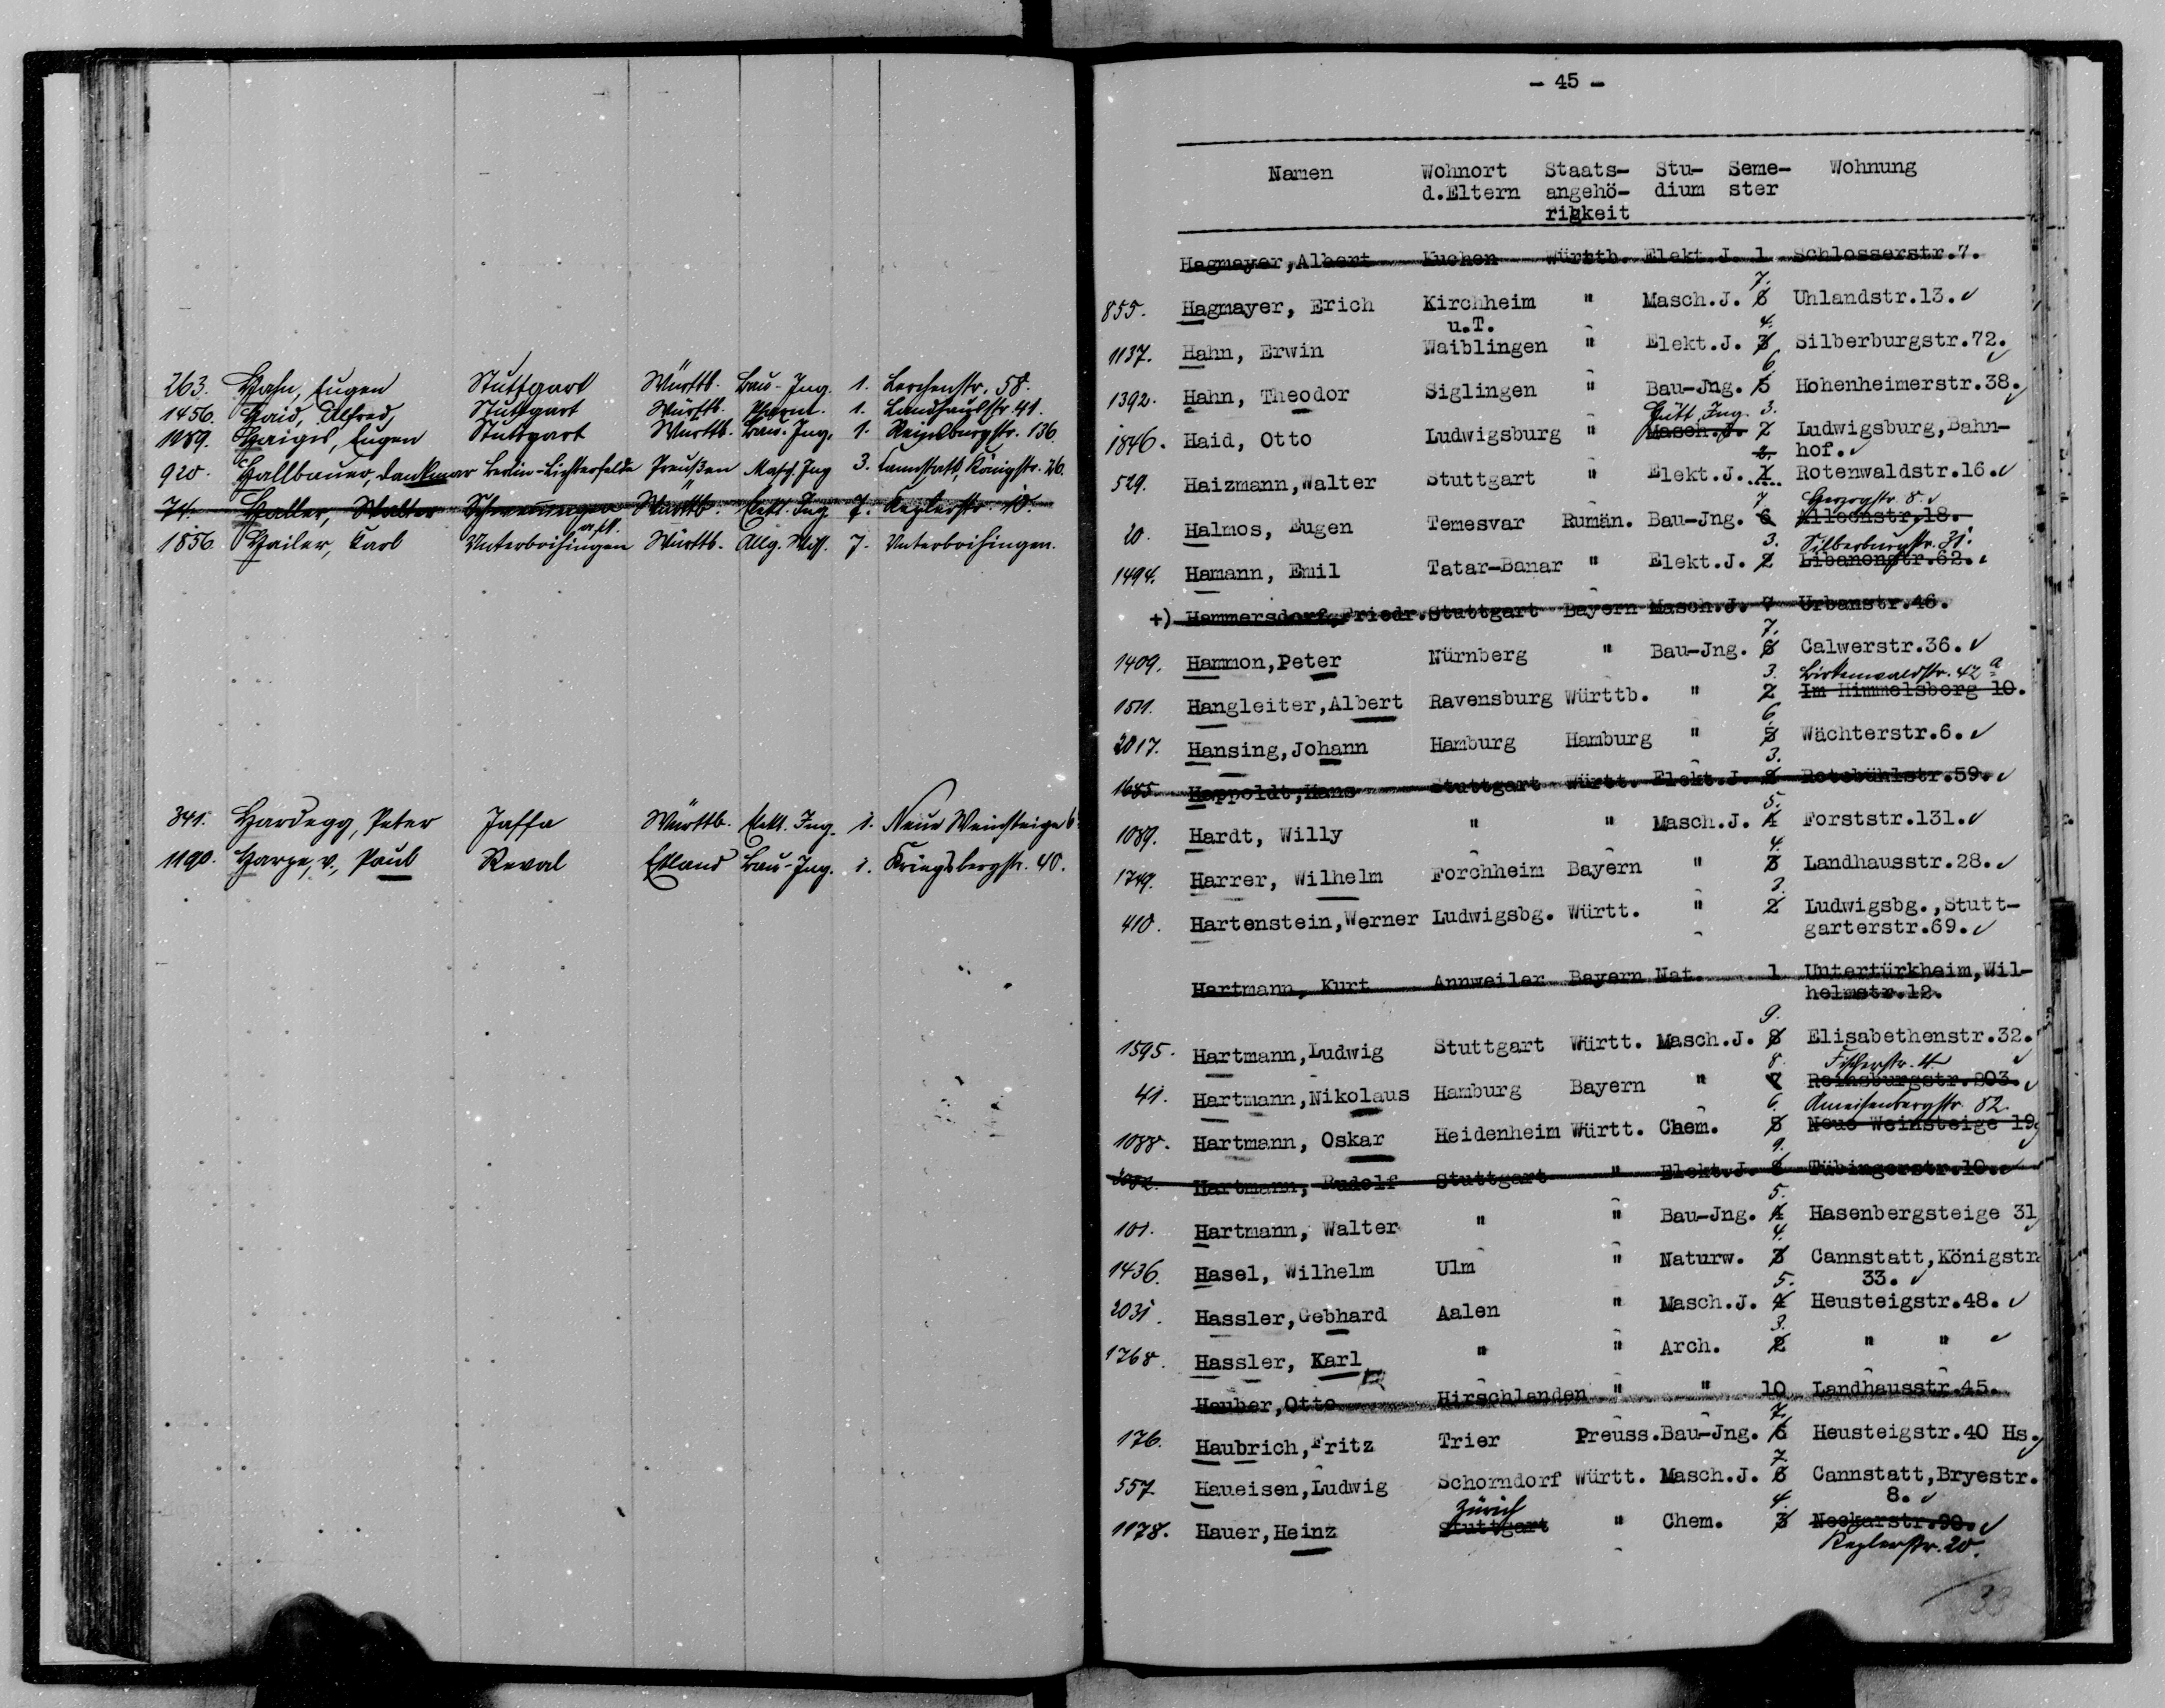 263. Hahn, Eugen Stuttgart Württb. Bau-Ing. 1. Lerchenstr. 58.
1456. Haid, Alfred, Stuttgart Württb. Pharm. 1. Landhausstr. 41.
1089. Haigis, Eugen Stuttgart Württb. Bau-Ing. 1. Reinsburgstr. 136.
920. Hallbauer, Dankmar Berlin-Lichterfelde Preußen Masch. Ing 3. Cannstatt, Königstr. 26.
74. Haller, Walter Schwenningen Württb. Elekt. Ing. 7. Keplerstr. 10.
1856 Hailer, Karl Unterboihingen Württb. Allg. Wiss. 7. Unterboihingen.
341. Hardegg, Peter Jaffa Württb. Elekt. Ing. 1. Neue Weinsteige 6
1190. Harpe, v., Paul Reval Estland Bau-Ing. 1. Kriegsbergstr. 40.
- 45 -
Namen Wohnort Staats- Stu- Seme- Wohnung
d.Eltern angehö- dium ster
rigkeit
Hagmayer,Albert Kuchen Württb. Elekt.J. 1 Schlosserstr.7.
7.
855. Hagmayer, Erich Kirchheim " Masch.J. 6 Uhlandstr.13.
u.T. 4.
1137. Hahn, Erwin Waiblingen " Elekt.J. 3 Silberburgstr.72.
6
1392. Hahn, Theodor Siglingen " Bau-Jng. 5 Hohenheimerstr.38.
Hütt. Ing. 3.
1846. Haid, Otto Ludwigsburg " Masch.J. 2 Ludwigsburg,Bahn-
2. hof.
529. Haizmann,Walter Stuttgart " Elekt.J. 1 Rotenwaldstr.16.
7 Herzogstr. 8.
20. Halmos, Eugen Temesvar Rumän. Bau-Jng. 6 Alleenstr.18.
3. Silberburgstr. 31.
1494. Hamann, Emil Tatar-Banar " Elekt.J. 2 Libanonstr.62.
+) Hammersdorf,Friedr.Stuttgart Bayern Masch.J. 7 Urbanstr.46.
7.
1409. Hammon,Peter Nürnberg " Bau-Jng. 6 Calwerstr.36.
3. Birkenwaldstr. 42 a
1511. Hangleiter,Albert Ravensburg Württb. " 2 Im Himmelsberg 10.
6.
2017. Hansing,Johann Hamburg Hamburg " 5 Wächterstr.6.
3.
1685. Happoldt,Hans Stuttgart Württ. Elekt.J. 2 Rotebühlstr.59.
5.
1089. Hardt, Willy " " Masch.J. 4 Forststr.131.
4.
1749. Harrer, Wilhelm Forchheim Bayern " 3 Landhausstr.28.
3.
410. Hartenstein,Werner Ludwigsbg. Württ. " 2 Ludwigsbg.,Stutt-
garterstr.69.
Hartmann, Kurt Annweiler Bayern Mat. 1 Untertürkheim,Wil-
helmstr.12.
9.
1595. Hartmann,Ludwig Stuttgart Württ. Masch.J. 8 Elisabethenstr.32.
8. Fischerstr. 4.
41. Hartmann,Nikolaus Hamburg Bayern " 7 Reinsburgstr.203.
6. Ameisenbergstr. 82.
1088. Hartmann, Oskar Heidenheim Württ. Chem. 5 Neue Weinsteige 19
9.
Hartmann, Rudolf Stuttgart " Elekt.J. 8 Tübingerstr.10.
5.
101. Hartmann, Walter " " Bau-Jng. 4 Hasenbergsteige 31
4.
1436. Hasel, Wilhelm Ulm " Naturw. 3 Cannstatt,Königstr
5. 33.
2031. Hassler,Gebhard Aalen " Masch.J. 4 Heusteigstr.48.
3.
1768. Hassler, Karl " " Arch. 2 " "
Hauber,Otto Hirschlanden " " 10 Landhausstr.45.
7.
176. Haubrich,Fritz Trier Preuss.Bau-Jng. 6 Heusteigstr.40 Hs.
7
557 Haueisen,Ludwig Schorndorf Württ. Masch.J. 6 Cannstatt,Bryestr.
Zürich 4. 8.
1178. Hauer,Heinz Stuttgart " Chem. 3 Neckarstr.90.
Keplerstr. 20.
33